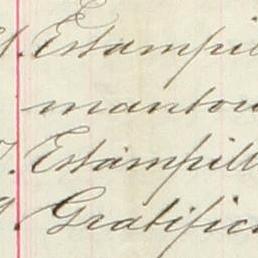 Estampil
manten
Estampill
Gratific